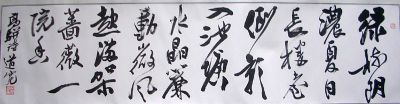 綠樹陰
濃夏日
長樓台
倒影
入池塘
水晶簾
動微風
起滿架
薔薇一
院香
高駢詩